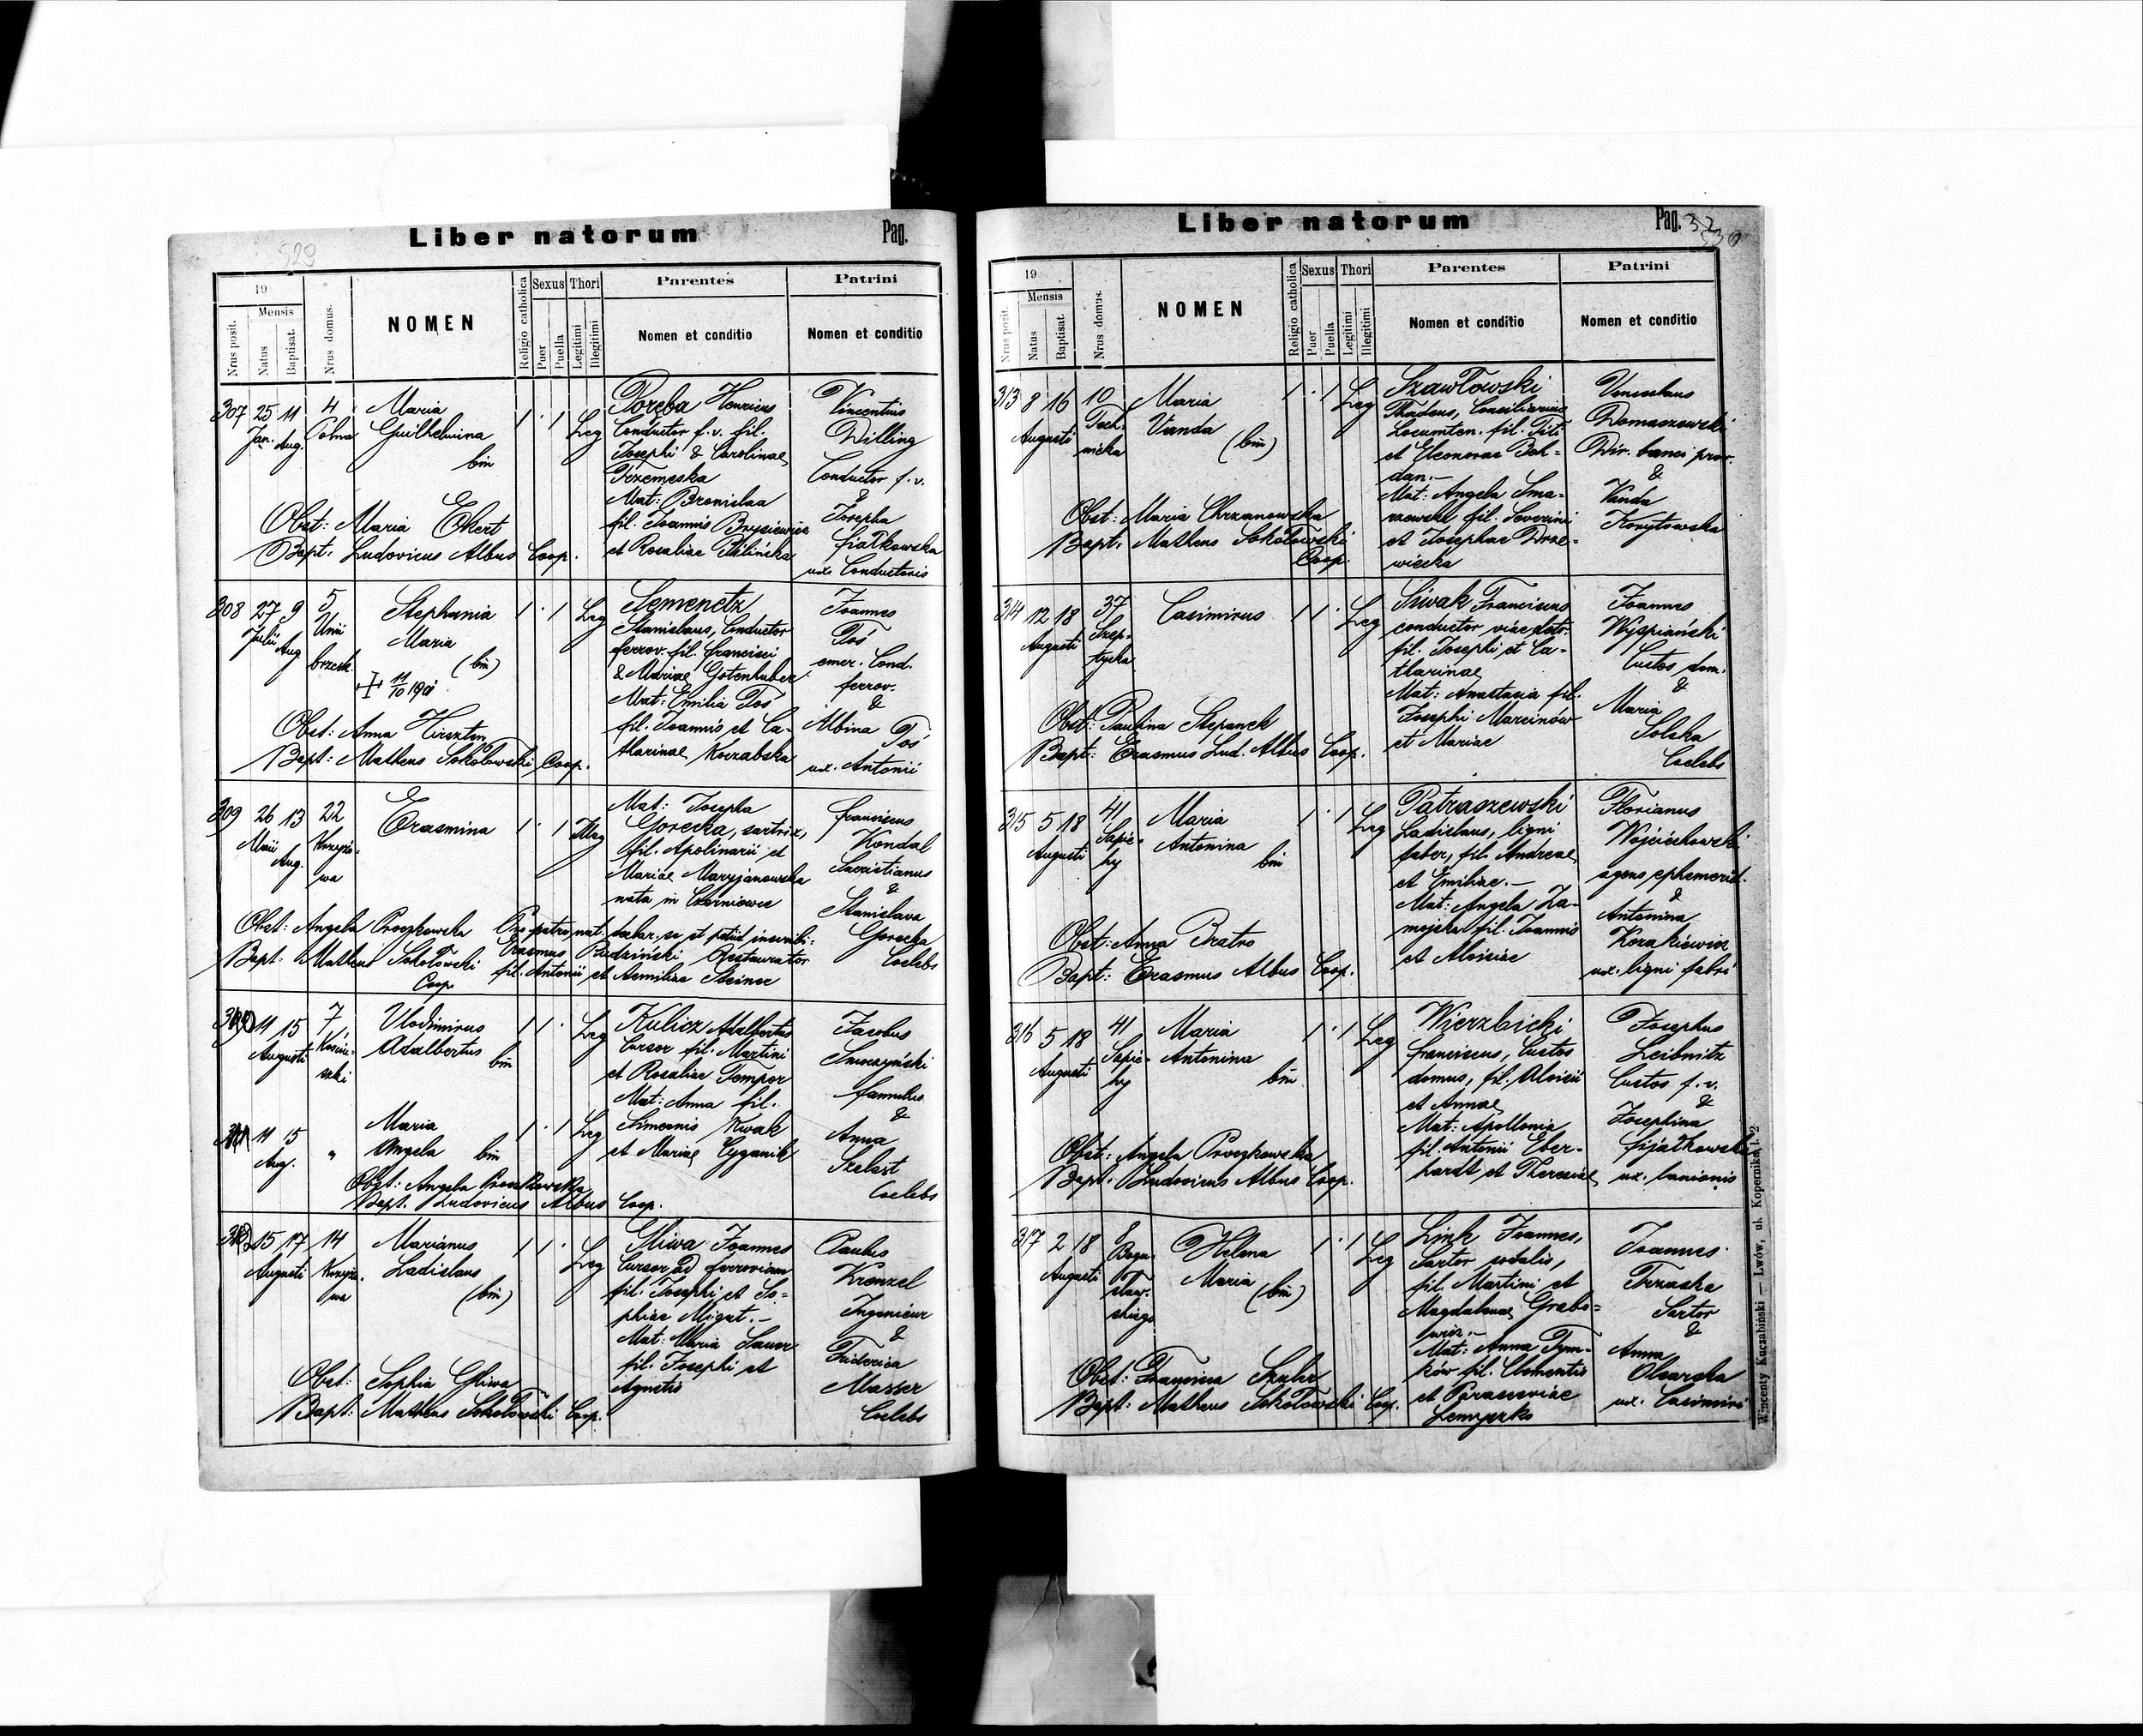 Liber natorum
Pag.
529
19
Mensis
Nrus posit.
Natus
Baptisat.
Nrus domus.
NOMEN
Religio catholica
Sexus
Puer
Puella
Thori
Legitimi
Illegitimi
Parentes
Nomen et conditio
Patrini
Nomen et conditio
307 25 11 4 Maria 1 · 1 Leg
Jan. Aug. Guilhelmina
bin
Obst: Maria Ekert
Bapt: Ludovicus Albus Coop.
Poręba Henricus
Conductor f. v. fil.
Josephi & Carolinae
Trzemeska
Mat: Bronislaa
fil. Joannis Brysiewicz
et Rosaliae
Vincentius
Willing
Conductor f. v.
&
Josepha
Fiałkowska
ux. Conductoris
308 27 9 5 Stephania 1 · 1 Leg
Julii Aug Unii Maria
brzesk. (bin)
Obst: Anna Hirszten
Bapt: Matheus Sokołowski Coop.
Semenetz
Stanislaus, Conductor
ferrov. fil. Francisci
& Mariae Gotenhuber
Mat: Emilia Tos
fil. Joannis et Ca-
tharinae Korzabska
Joannes
Toś
emer. Cond.
ferrov.
&
Albina Toś
ux. Antonii
309 26 13 22 Erasmina 1 · 1 Illeg
Maii Aug. Krzyżo-
wa
Obst: Angela Proczkowska
Bapt: Matheus Sokołowski
Coop
Mat: Josepha
Gorecka, sartrix,
fil. Apolinarii et
Mariae Maryjanowska
nata in Czerniowce
Pro patre nat. declar. se et petiit inscribi:
Erasmus Rudziński Restaurator
fil. Antonii et Aemiliae Steiner
Franciscus
Kondal
Sacristianus
&
Stanislava
Gorecka
Coelebs
310 11 15 7 Vlodimirus 1 1 · Leg
Augusti Kościu- Adalbertus
szki bin
Kulicz Adalbertus
Cursor fil. Martini
et Rosaliae Tempor
Mat: Anna fil.
Simeonis Kwak
et Mariae Cyganik
Jacobus
Smoczyński
famulus
&
Anna
Szelast
Coelebs
311 11 15 " Maria 1 · 1 Leg
Aug. Angela bin
Obst: Angela Proczkowska
Bapt. Ludovicus Albus Coop.
312 15 17 14 Marianus 1 1 · Leg
Augusti Krzyżo- Ladislaus
wa (bin)
Obst: Sophia Gliwa
Bapt: Matheus Sokołowski Coop.
Gliwa Joannes
Cursor ad ferroviam
fil. Josephi et So-
phiae Migut.–
Mat: Maria Sauer
fil. Josephi et
Agnetis
Paulus
Krenzel
Ingenieur
&
Friderica
Masser
Coelebs
Liber natorum
Pag. 32
530
19
Mensis
Nrus posit.
Natus
Baptisat.
Nrus domus.
NOMEN
Religio catholica
Sexus
Puer
Puella
Thori
Legitimi
Illegitimi
Parentes
Nomen et conditio
Patrini
Nomen et conditio
313 8 16 10 Maria 1 · 1 Leg
Augusti Tech- Vanda
nicka (bin)
Obst: Maria Chrzanowska
Bapt: Matheus Sokołowski
Coop.
Szawłowski
Thadeus, Consiliarius
Locumten. fil. Titi
et Eleonorae Boh-
dan.–
Mat: Angela Sma-
rzewski fil. Severini
et Josephae Drze-
wiecka
Venceslaus
Domaszewski
Dir. banci prov.
&
Vanda
Korytowska
314 12 18 37 Casimirus 1 1 · Leg
Augusti Szep-
tycka
Obst: Paulina Stepanek
Bapt: Erasmus Lud. Albus Coop.
Siwak Franciscus
conductor viae
fil. Josephi et Ca-
tharinae
Mat: Anastasia fil.
Josephi Marcinów
et Mariae
Joannes
Wyspiański
Custos dom.
&
Maria
Solska
Coelebs
315 5 18 41 Maria 1 · 1 Leg
Augusti Sapie- Antonina
hy bin
Obst: Anna Bratro
Bapt: Erasmus Albus Coop.
Patraszewski
Ladislaus, ligni
faber, fil. Andreae
et Emiliae.–
Mat: Angela Za-
mojska fil. Joannis
et Aloisiae
Florianus
Wojciechowski
agens ephemerid.
&
Antonina
Kozakiewicz
ux. ligni fabri
316 5 18 41 Maria 1 · 1 Leg
Augusti Sapie- Antonina
hy bin
Obst: Angela Proczkowska
Bapt. Ludovicus Albus Coop.
Wierzbicki
Franciscus, Custos
domus, fil. Aloisii
et Annae
Mat: Apollonia
fil. Antonii Eber-
hardt et Theresiae
Josephus
Leibnitz
Custos f. v.
&
Josephina
Fijałkowska
ux. lanionis
317 2 18 8 Helena 1 · 1 Leg
Augusti Bogu- Maria
sław- (bin)
skiego
Obst: Francisca Szuler
Bapt: Matheus Sokołowski Coop.
Link Joannes,
Sartor sodalis,
fil. Martini et
Magdalenae Grabo-
wicz.–
Mat: Anna Tym-
ków fil. Clementis
et Parasceviae
Lemyszko
Joannes
Trzaska
Sartor
&
Anna
Olearska
ux. Casimiri
Wincenty Kuczabiński — Lwów, ul. Kopernika l. 2